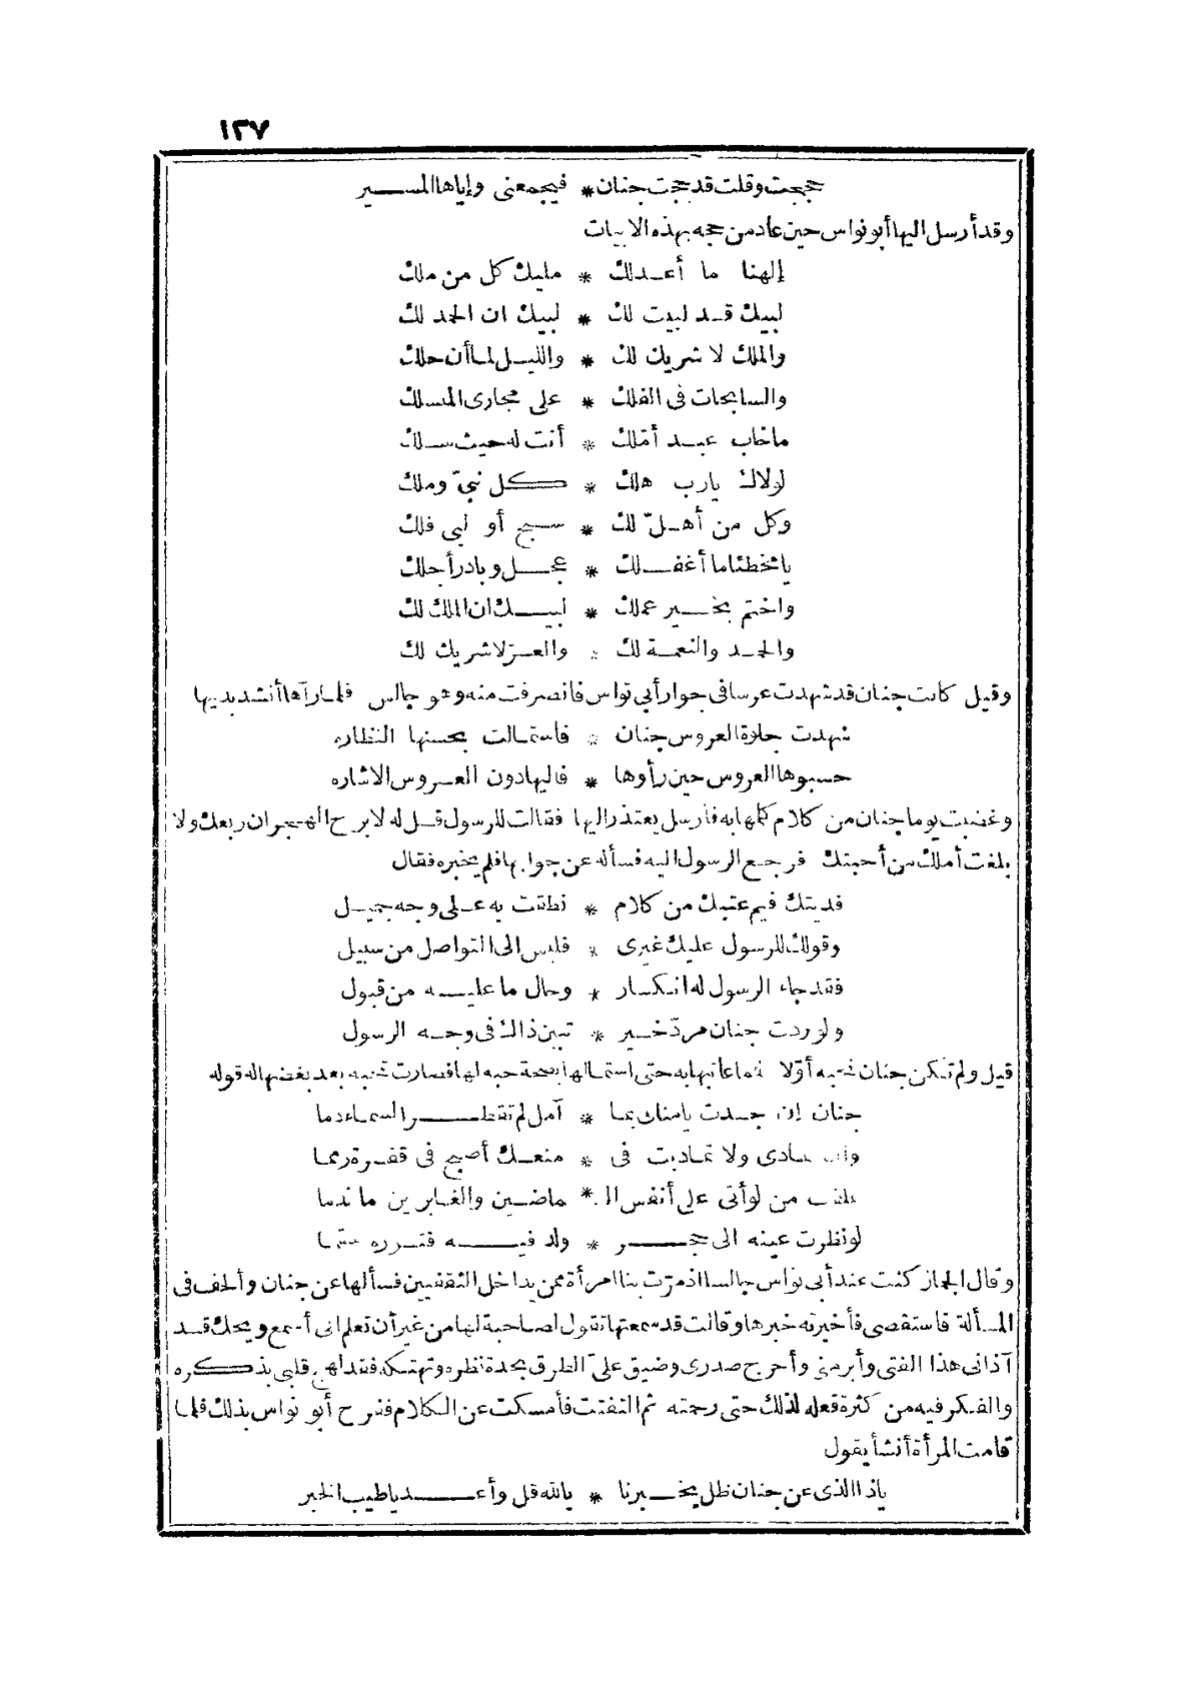 ١٣٧
حججت وقلت قد حجت جنان * فيجمعنى وإياها المسير
وقد أرسل اليها أبو نواس حين عاد من حجه بهذه الابيات
إلهنا ما أعدلك * مليك كل من ملك
لبيك قد لبيت لك * لبيك ان الحمد لك
والملك لا شريك لك * والليل لما أن حلك
والسابحات فى الفلك * على مجارى المنسلك
ماخاب عبد أمّلك * أنت له حيث سلك
لولاك يارب هلك * كل نبىّ وملك
وكل من أهلّ لك * سبح أو لبى فلك
يامخطئاما أغفلك * عجل وبادر أجلك
واختم بخير عملك * لبيك ان الملك لك
والحمد والنعمة لك * والعز لا شريك لك
وقيل كانت جنان قد شهدت عرسا فى جوار أبى نواس فانصرفت منه وهو جالس فلما رآها أنشد بديها
شهدت جلوة العروس جنان * فاستمالت بحسنها النظاره
حسبوها العروس حين رأوها * فاليها دون العروس الاشاره
وغضبت يوما جنان من كلام كلمها به فأرسل يعتذر اليها فقالت للرسول قل له لابرح الهجران ربعك ولا
بلغت أملك من أحبتك فرجع الرسول اليه فسأله عن جوابها فلم يخبره فقال
فديتك فيم عتبك من كلام * نطقت به على وجه جميل
وقولك للرسول عليك غيرى * فليس الى التواصل من سبيل
فقد جاء الرسول له انكسار * وحال ما عليه من قبول
ولو ردت جنان مردّ خير * تبين ذاك فى وجه الرسول
قيل ولم تكن جنان تحبه أوّلا فما عاتبها به حتى استمالها بصحة حبه لها فصارت تحبه بعد بغضها له قوله
جنان إن جدت يامناى بما * آمل لم تقطر السماء دما
وان تمادى ولا تماديت فى * منعك أصبح فى قفرة رمما
علقت من لو أتى على أنفس الـ * ماضين والغابرين ما ندما
لو نظرت عينه الى حجر * ولد فيه فتوره سقما
وقال الجماز كنت عند أبى نواس جالسا اذ مرّت بنا امرأة ممن يداخل الثقفيين فسألها عن جنان وألحف فى
المسألة فاستقصى فأخبرته خبرها وقالت قد سمعتها تقول لصاحبة لها من غير أن تعلم انى أسمع ويحك قد
آذانى هذا الفتى وأبرمنى وأحرج صدرى وضيق علىّ الطرق بحدة نظره وتهتكه فقد لهج قلبى بذكره
والفكر فيه من كثرة فعله لذلك حتى رحمته ثم التفتت فأمسكت عن الكلام ففرح أبو نواس بذلك فلما
قامت المرأة أنشأ يقول
ياذا الذى عن جنان ظل يخبرنا * بالله قل وأعد ياطيب الخبر